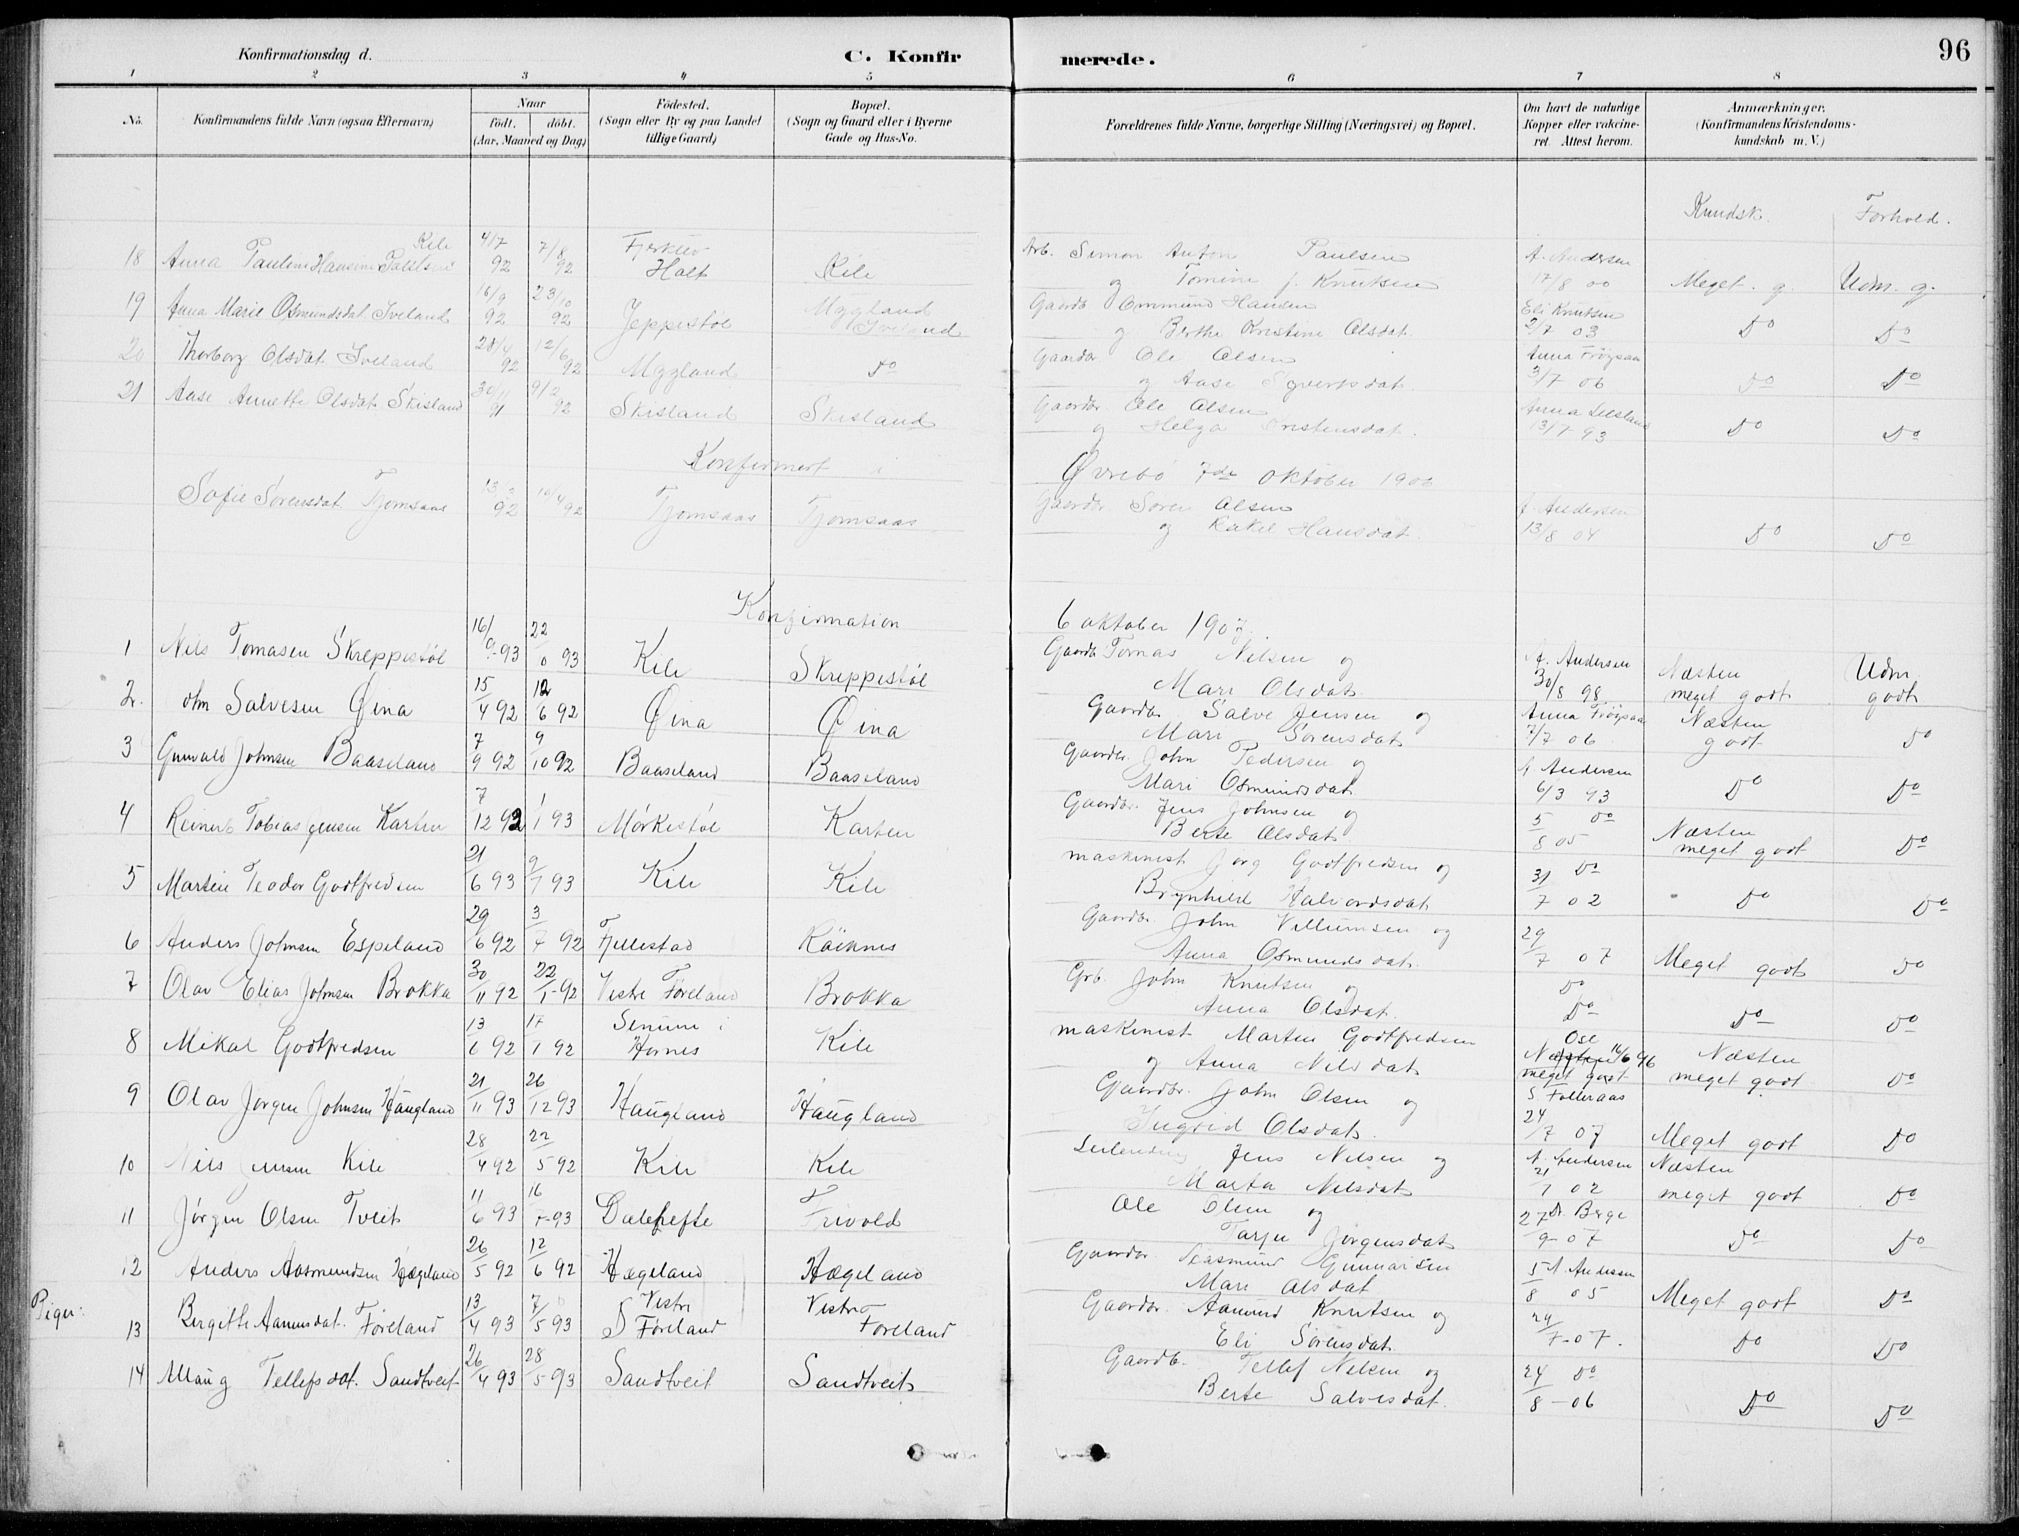 96
Konfirmationsdag d. C. Konfirmerede.
1 2 3 4 5 6 7 8
No. Konfirmandens fulde Navn (ogsaa Efternavn) Naar født. døbt. (Aar, Maaned og Dag) Födested. (Sogn eller By og paa Landet tillige Gaard) Bopæl. (Sogn og Gaard eller i Byerne Gade og Hus-No. Forældrenes fulde Navne, borgerlige Stilling (Næringsvei) og Bopæl. Om havt de naturlige Kopper eller vakcineret. Attest herom. Anmærkninger. (Konfirmandens Kristendomskundskab m. V.)
Kundsk. Forhold.
18 Anna Pauline Hansine Paulsen Kile 4/7 92 7/8 92 Holt Kile Arb. Simon Anton Paulsen og Tomine f. Knutsen A. Andersen 17/8 00 Meget. g. Udm. g.
19 Anna Marie Osmundsdat. Iveland 16/9 92 23/10 92 Jeppestøl Mygland Iveland Gaardb. Ommund Hansen og Berthe Kristine Olsdat. Eli Knutsen 2/7 03 Do Do
20 Thorborg Olsdat. Iveland 28/4 92 12/6 92 Mygland Do Gaardbr. Ole Olsen og Aase Syvertsdat. Anna Frøysaa 3/7 06 Do Do
21 Aase Annette Olsdat. Skisland 30/11 91 9/2 92 Skisland Skisland Gaardbr. Ole Olsen og Helga 13/7 93 Do Do
Konfirmert i Øvrebø 7de oktober 1906
Sofie Sørensdat. Tjomsaas 92 92 Tjomsaas Tjomsaas Gaardbr. Søren Olsen og Rakel Hansdat. A. Andersen 13/8 04 Do Do
Konfirmation 6 oktober 1907.
1 Nils Tomasen Skreppestøl 16/ 93 22 93 Kile Skreppestøl Gaardb. Tomas Nilsen og Mari Olsdat. A. Andersen 30/8 98 Næsten meget godt Udm. godt
2. Salvesen Øina 15/4 92 12/6 92 Øina Øina Gaardbr. Salve Jensen og Mari Sørensdat. Anna Frøysaa 7/7 06 Næsten godt Do
3 Gunvald Johnsen Baaseland 7/9 92 9/10 92 Baaseland Baaseland Gaardbr. John Pedersen og Mari Osmundsdat. A. Andersen 6/3 93 Do Do
4 Reinert Tobias Jensen Karten 7/12 92 1/1 93 Mørkestøl Karten Gaardbr. Jens Johnsen og Berte Olsdat. 5/8 05 Do Næsten meget godt Do
5 Martin Teodor Godtfredsen 21/6 93 9/7 93 Kile Kile maskinist Jørg Godtfredsen og Brynhild Halvordsdat. 31/7 02 Do Do Do
6 Anders Johnsen Espeland 29/6 92 3/7 92 Fjellestad Røiknes Gaardbr. John Villumsen og Anna Osmundsdat. 29/7 07 Meget godt Do
7 Olav Elias Johnsen Brokka 30/11 92 22/1-92 Vestre Føreland Brokka Grb. John Knutsen og Anna Olsdat. Do Do Do Do
8 Mikal Godtfredsen 13/6 92 17/7 92 Senum i Hornes Kile maskinist Martin Godtfredsen og Anna Nilsdat. Ose 16/6 96 Næsten meget godt Do
9 Olav Jørgen Johnsen Haugland 21/11 93 26/12 93 Haugland Haugland Gaardbr. John Olsen og Ingrid Olsdat. 24/7 07 Meget godt Do
10 Nils Jensen Kile 28/4 92 22/5 92 Kile Kile Leilending Jens Nilsen og Marta Nilsdat. A. Andersen 21/7 02 Næsten meget godt Do
11 Jørgen Olsen Tveit 11/6 93 16/7-93 Frivold Ole Olsen og Tarjer Jørgensdat. Dr. Berge 27/9-07 Do Do
12 Anders Aasmundsen Hægeland 26/5 92 12/6 92 Hægeland Hægeland Gaardbr. Aasmund Gunnarsen Mari Olsdat A. Andersen 5/8 05 Meget godt Do
Piger:
13 Bergitte Aanensdat. Føreland 13/4 93 7/5 93 Vestre Føreland Vestre Føreland Gaardbr. Aanund Knutsen og Eli Sørensdat. 24/7-07. Do Do
14 Maug Tellefsdat. Sandtveit 26/4 93 28/5-93 Sandtveit Sandtveit Gaardb. Tellef Nilsen og Berte Salvesdat. 24/8-06 Do Do Do